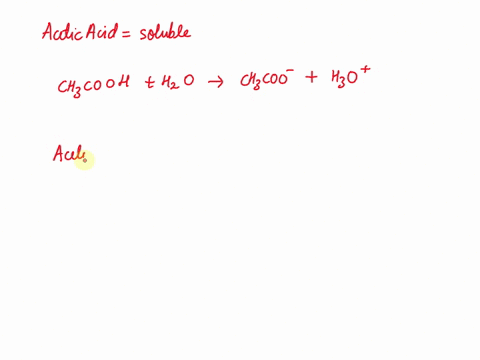 Acetic Acid = soluble
CH₃COOH + H₂O → CH₃COO⁻ + H₃O⁺
Acet